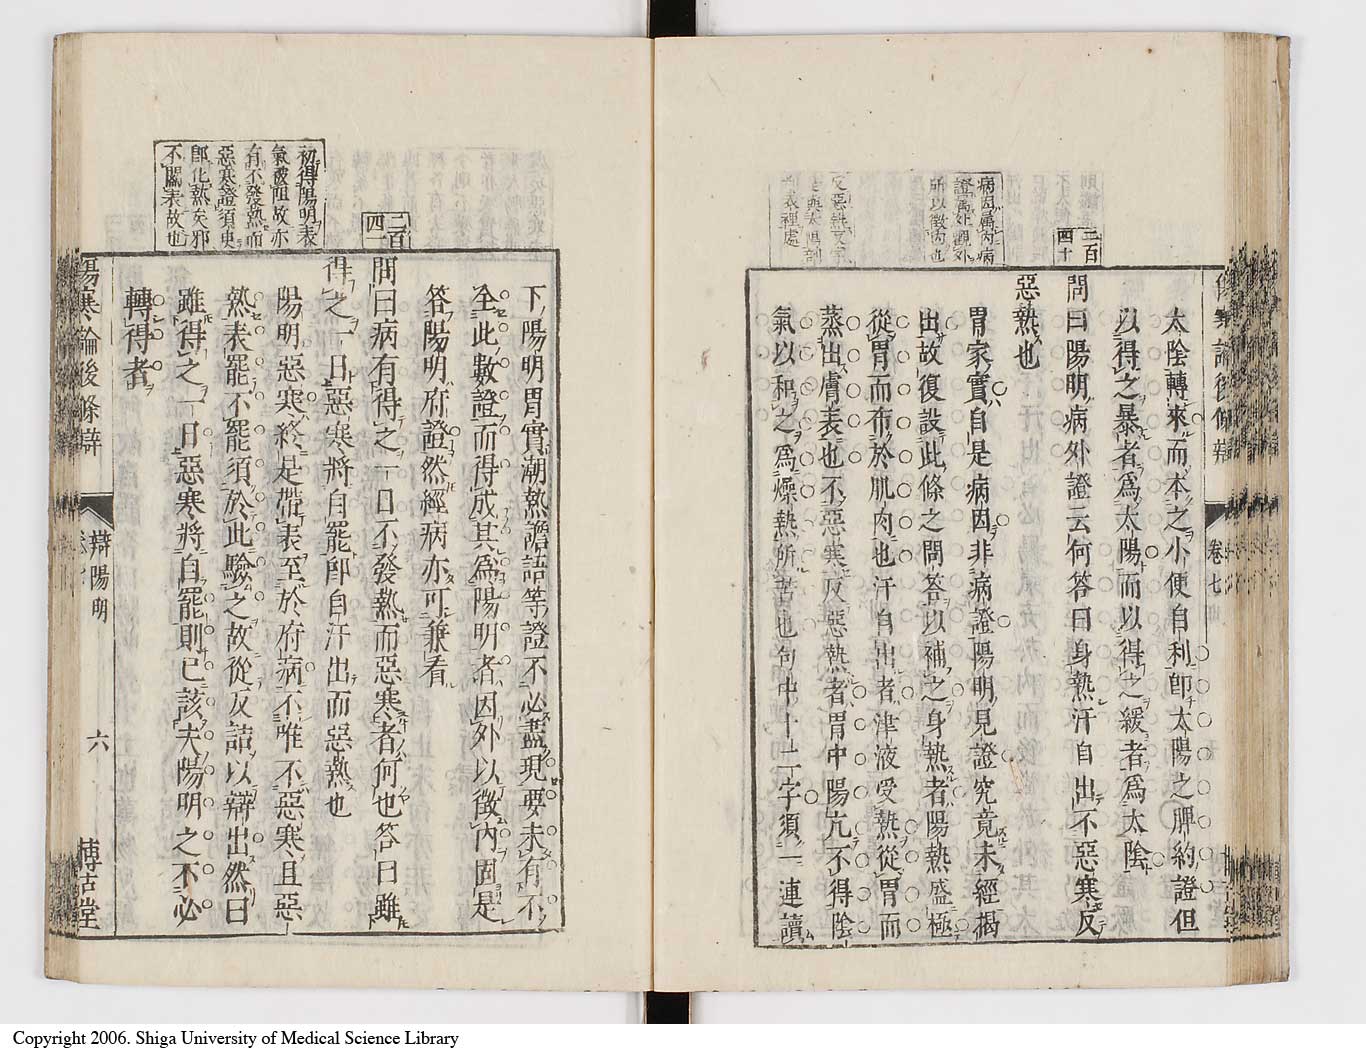 傷寒論後條辯
卷七
二百
四十
病因屬內病
證屬外觀外
所以徵內也
太陰轉來而本之小便自利卽太陽之脾約證但
以得之暴者爲太陽而以得之緩者爲太陰
問曰陽明病外證云何答曰身熱汗自出不惡寒反
惡熱也
胃家實自是病因非病證陽明見證究竟未經揭
出故復設此條之問答以補之身熱者陽熱盛極
從胃而布於肌肉也汗自出者津液受熱從胃而
蒸出膚表也不惡寒反惡熱者胃中陽亢不得陰
氣以和之爲燥熱所苦也句中十二字須一連讀
下陽明胃實潮熱譫語等證不必盡現要未有不
全此數證而得成其爲陽明者因外以徵內固是
答陽明府證然經病亦可兼看
二百
四一
問曰病有得之一日不發熱而惡寒者何也答曰雖
得之一日惡寒將自罷卽自汗出而惡熱也
初得陽明表
氣被阻故亦
有不發熱而
惡寒證須臾
卽化熱矣邪
不關表故也
陽明惡寒終是帶表至於府病不唯不惡寒且惡
熱表罷不罷須於此驗之故從反詰以辯出然曰
雖得之一日惡寒將自罷則已該夫陽明之不必
轉得者
傷寒論後條辯
辯陽明
六
博古堂